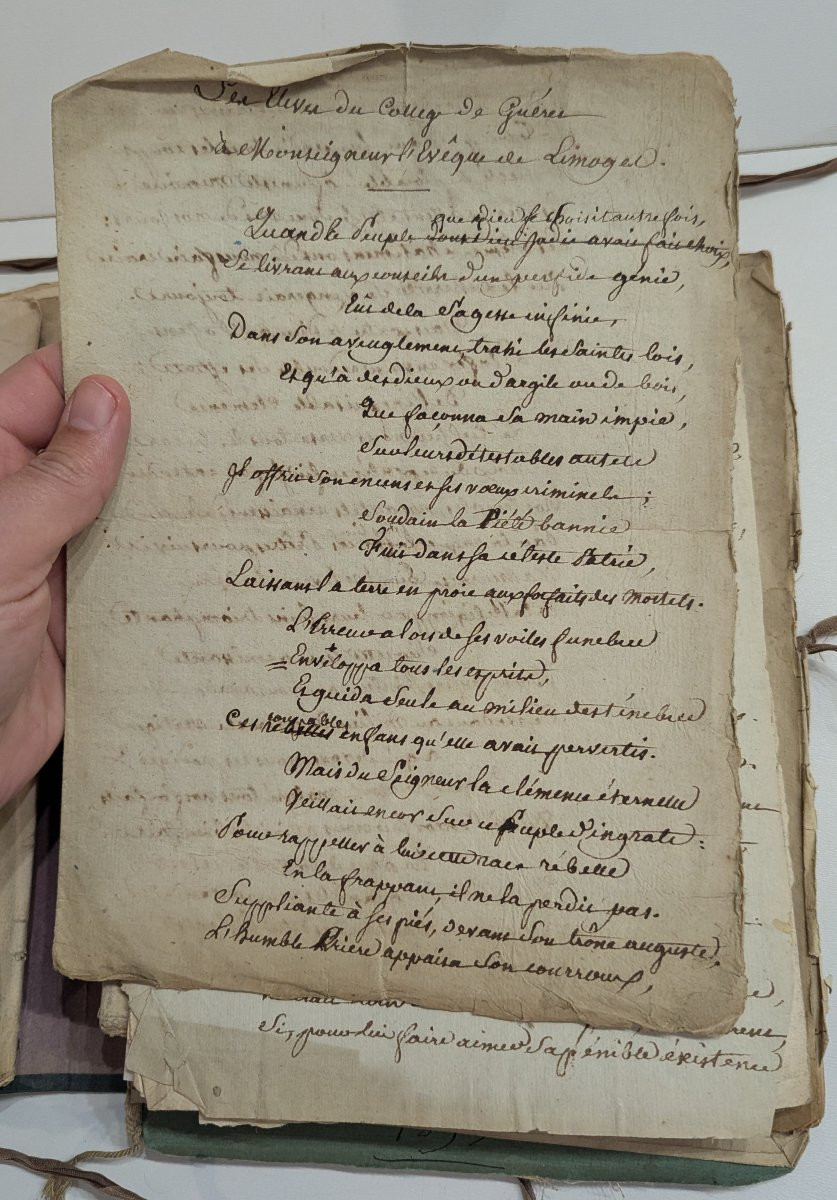 Les Elèves du College de Guéret
à Monseigneur l'Evêque de Limoges.
que dieu se choisit autrefois,
Quand le Peuple dont Dieu jadis avait fait choix,
Se livrant aux conseils d'un perfide génie,
Eut de la Sagesse infinie,
Dans son aveuglement, trahi les Saintes lois,
Et qu'à des dieux ou d'argile ou de bois,
Que façonna sa main impie,
Sur leurs détestables autels
Il offrit son encens et ses vœux criminels ;
Soudain la Piété bannie
Fuit dans sa céleste Patrie,
Laissant la terre en proie aux forfaits des mortels.
L'Erreur alors de ses voiles funebres
Enveloppa tous les esprits,
Et guida seule au milieu des ténebres
coupables
Ces rebelles enfans qu'elle avait pervertis.
Mais du Seigneur la clémence éternelle
Veillait encor sur ce peuple d'ingrats :
Pour rappeller à lui cette race rébelle
En la frappant, il ne la perdit pas.
Suppliante à ses piés, devant son trône auguste,
L'humble Prière appaisa son courroux,
Si, pour lui faire aimer sa pénible existence